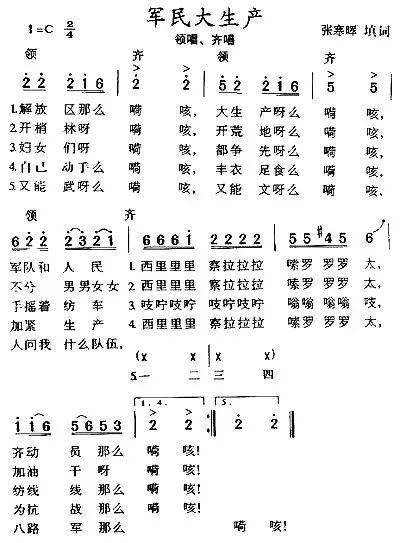 军民大生产
1=C 2/4
领唱、齐唱
张寒晖 填词
领 齐 领 齐
2 2 2 1 6 2 2 5 2 2 1 6 5 5
1.解放 区那么 嗬 咳, 大生 产呀么 嗬 咳,
2.开梢 林呀 嗬 咳, 开荒 地呀么 嗬 咳,
3.妇女 们呀 嗬 咳, 都争 先呀么 嗬 咳,
4.自己 动手么 嗬 咳, 丰衣 足食么 嗬 咳,
5.又能 武呀么 嗬 咳, 又能 文呀么 嗬 咳,
领 齐
6 2 2 2 3 2 1 6 6 6 1 2 2 2 2 5 5 #4 5 6
军队和 人民 1.西里里里 察拉拉拉 嗦罗 罗罗 太,
不分 男男女女 2.西里里里 察拉拉拉 嗦罗 罗罗 太,
手摇着 纺车 3.吱咛吱咛 吱咛吱咛 嗡嗡 嗡嗡 吱,
加紧 生产 4.西里里里 察拉拉拉 嗦罗 罗罗 太,
人问我 什么队伍,
(x x x x)
5.一 二 三 四
1.4.
1 1 6 5 6 5 3 2 2 2 2
齐动 员那么 嗬 咳!
加油 干呀 嗬 咳!
纺线 线那么 嗬 咳!
为抗 战那么 嗬 咳!
八路 军那么 嗬 咳!